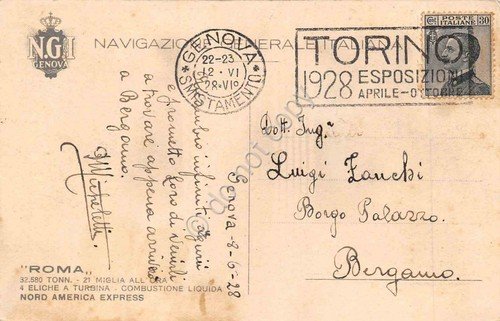 N.G.I
GENOVA
NAVIGAZIONE GENERALE ITALIANA
GENOVA
22-23
12·VI
28·VI
SMISTAMENTO
TORINO
1928 ESPOSIZIONI
APRILE-OTTOBRE
POSTE ITALIANE
30
Genova 8-6-28
infiniti auguri
e prometto loro di venirli
a trovare appena arrivo
a Bergamo.
Dott. Ing.
Luigi Zanchi
Borgo Palazzo.
Bergamo.
"ROMA"
32.580 TONN. - 21 MIGLIA ALL'ORA
4 ELICHE A TURBINA - COMBUSTIONE LIQUIDA
NORD AMERICA EXPRESS